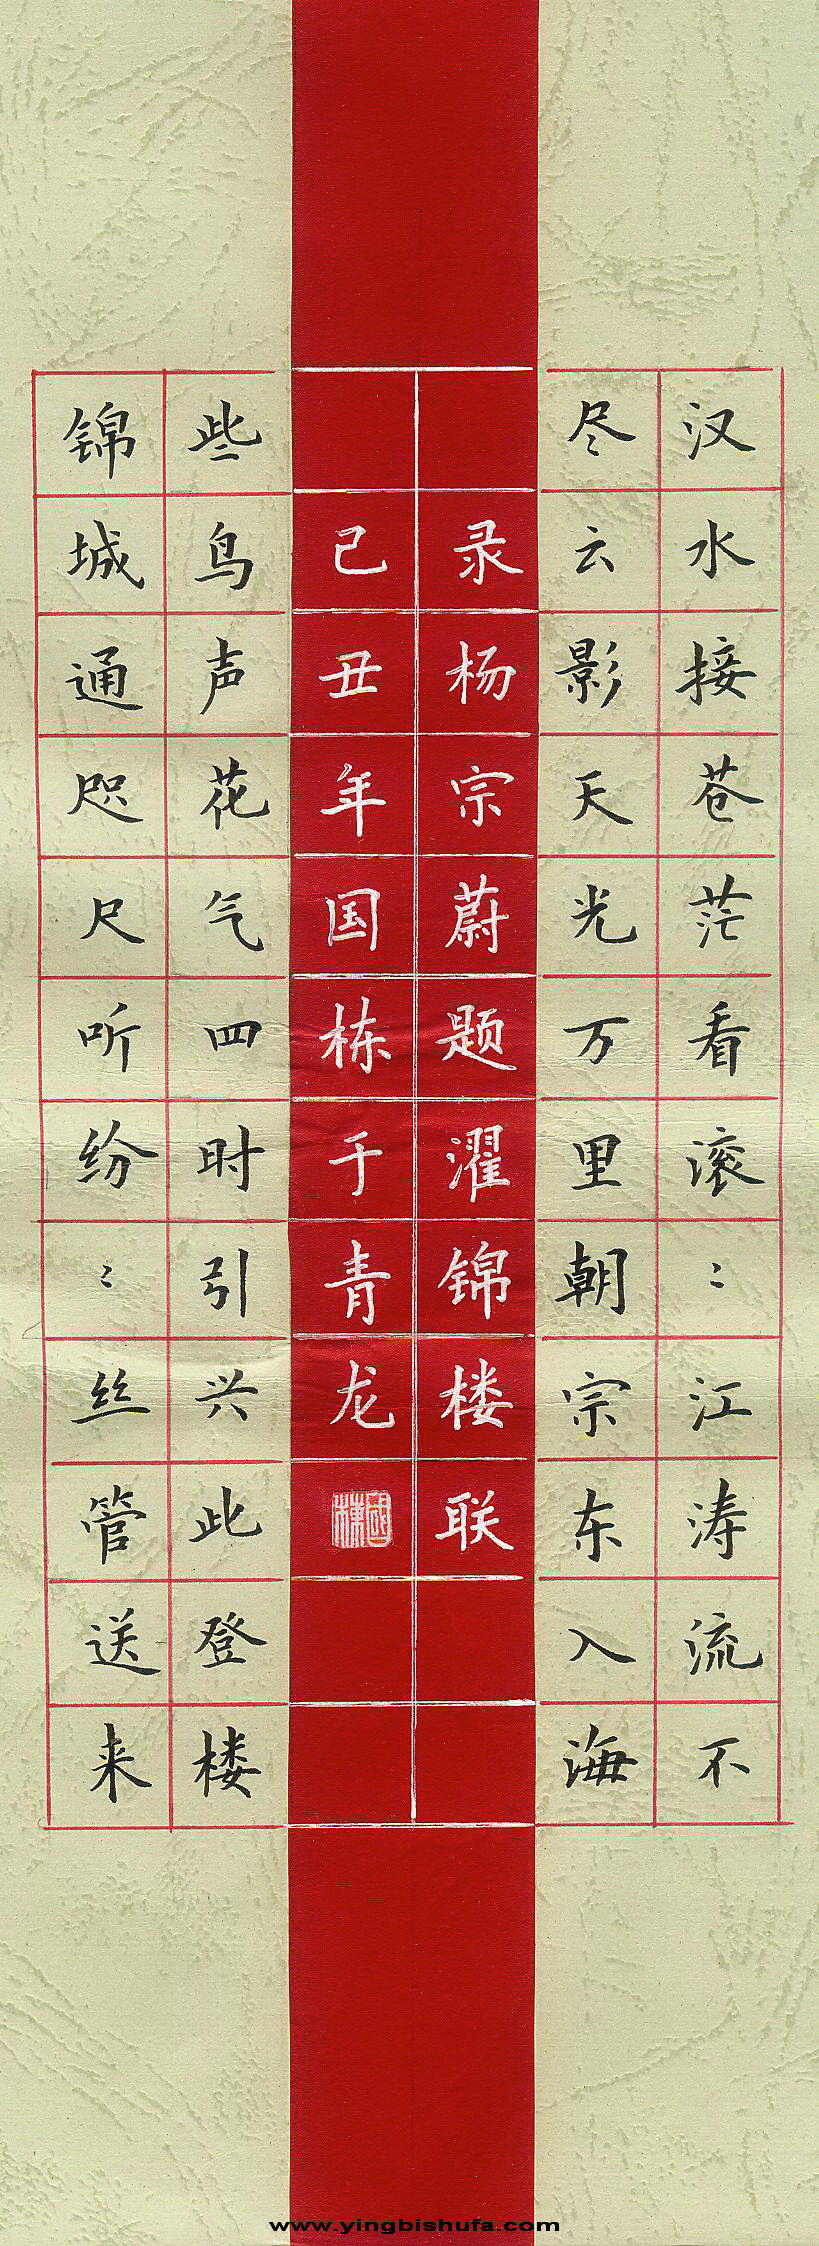 汉水接苍茫看滚〻江涛流不
尽云影天光万里朝宗东入海
锦城通咫尺听纷〻丝管送来
些鸟声花气四时引兴此登楼
录杨宗蔚题濯锦楼联
己丑年国栋于青龙
國棟
www.yingbishufa.com